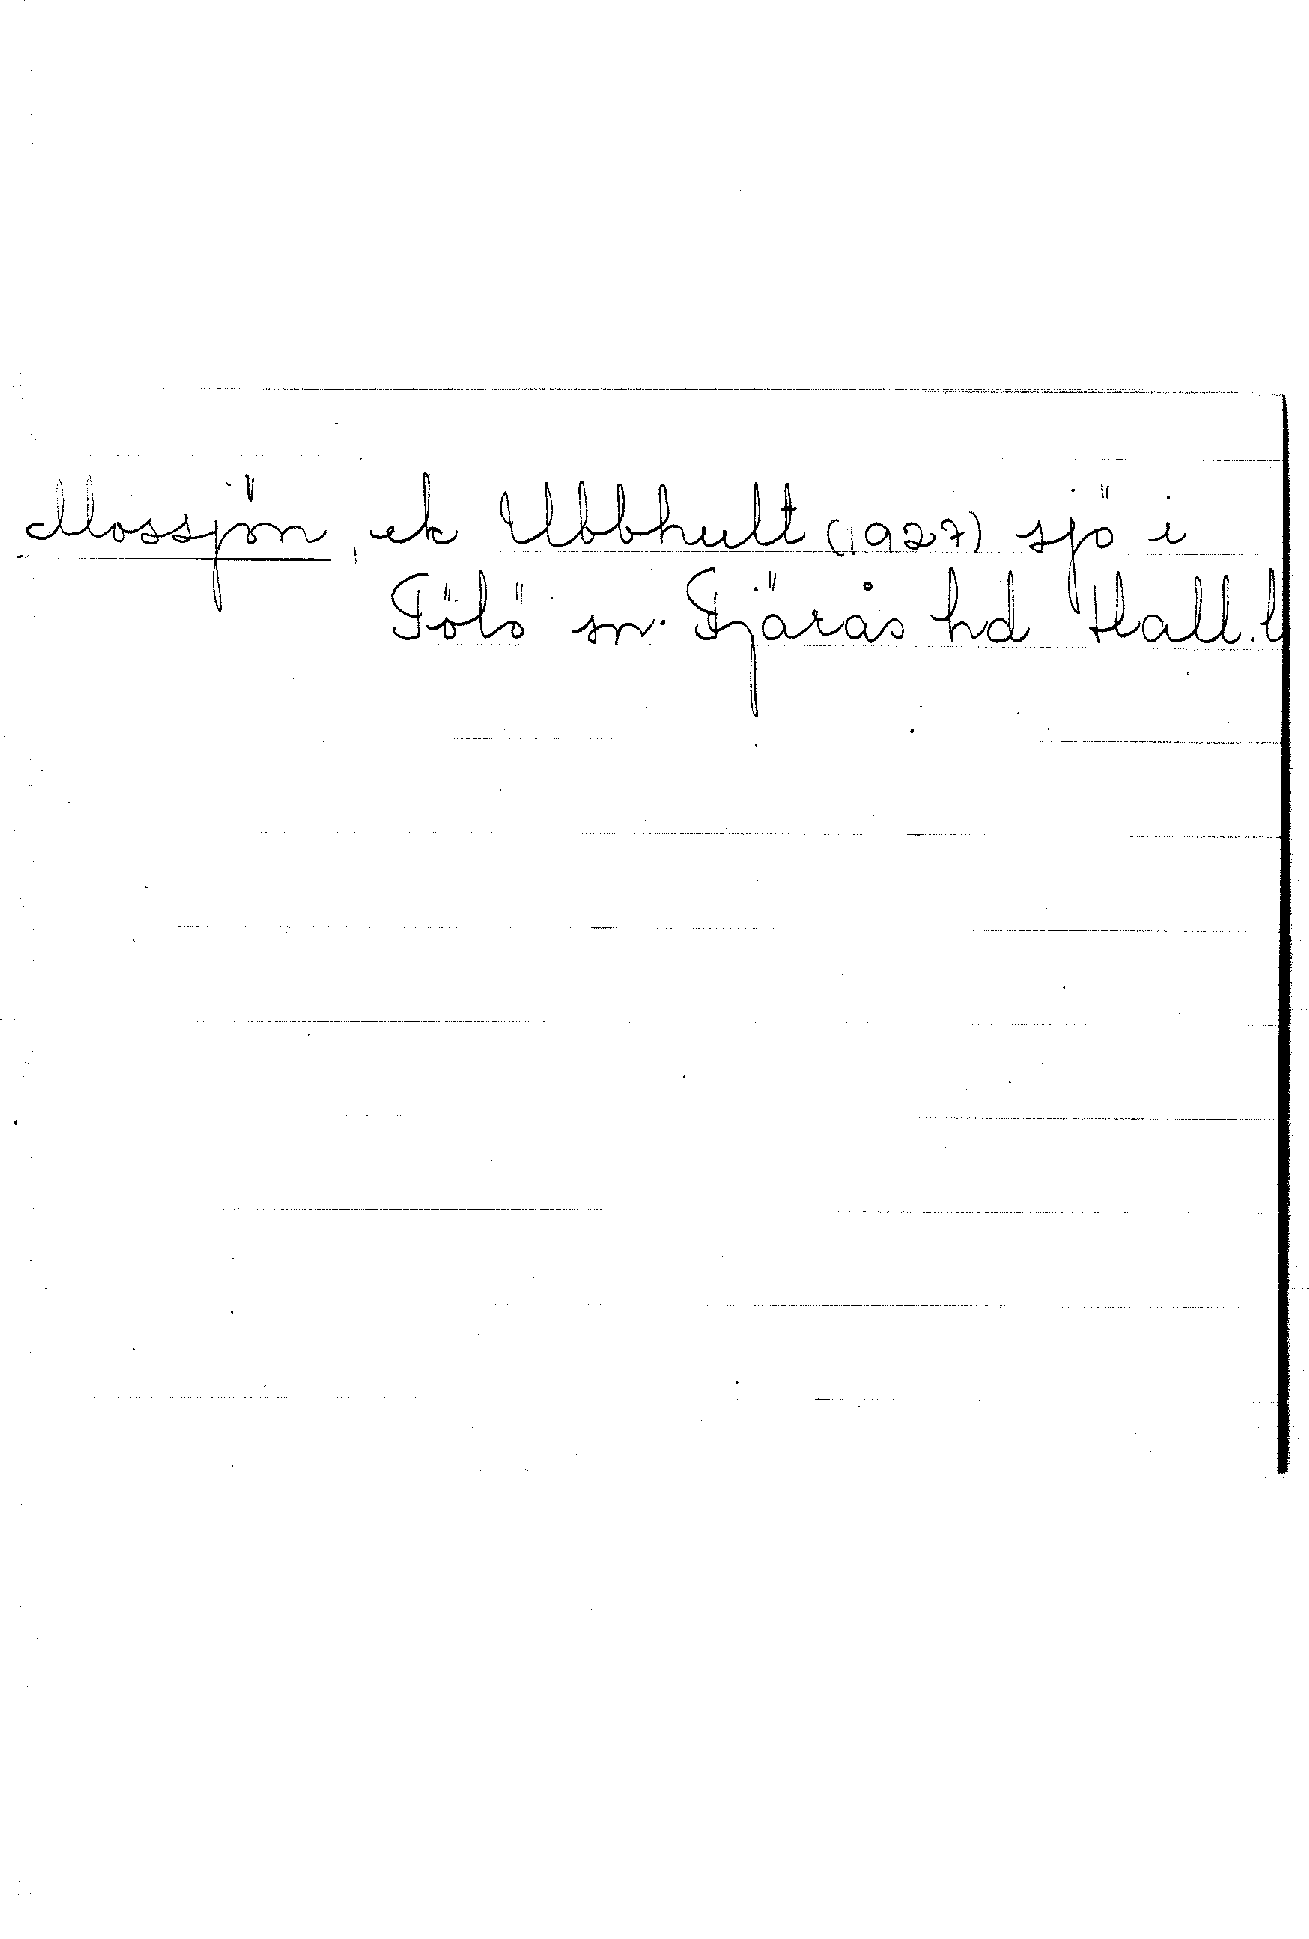 Mossjön, ek Ubbhult (1927) sjö i
Fölö sn. Fjärås hd Hall. l